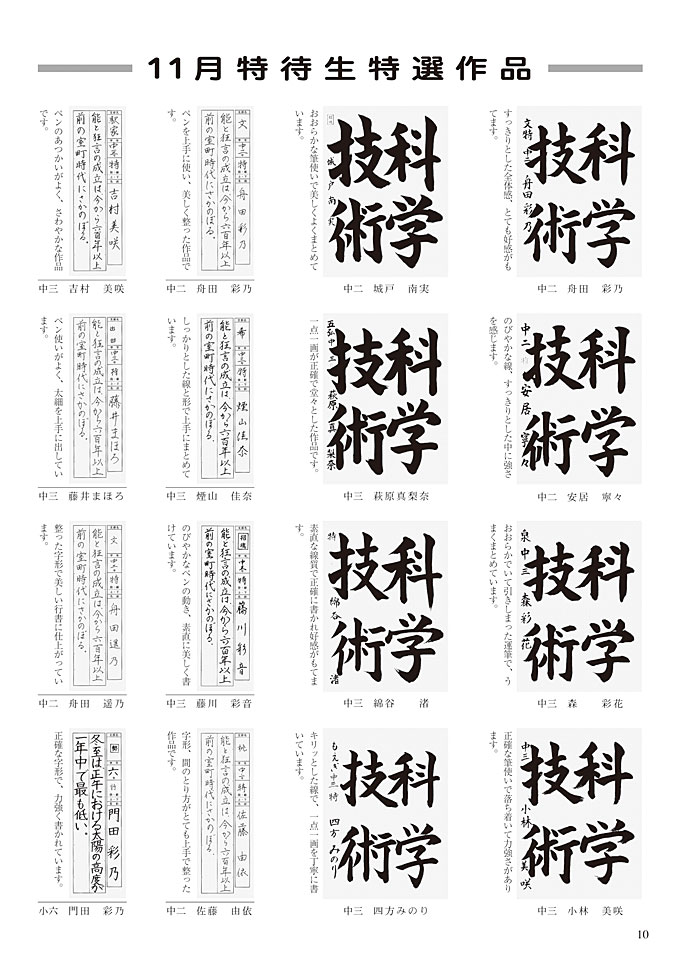 11月特待生特選作品
科学
技術
文特 中二 舟田彩乃
すっきりとした全体感、とても好感がも
てます。
中二 舟田 彩乃
科学
技術
城戸南実
おおらかな筆使いで美しくよくまとめて
います。
中二 城戸 南実
文 中二 特 舟田彩乃
能と狂言の成立は今から六百年以上
前の室町時代にさかのぼる。
ペンを上手に使い、美しく整った作品で
す。
中二 舟田 彩乃
駅家 中三 特 吉村美咲
能と狂言の成立は今から六百年以上
前の室町時代にさかのぼる。
ペンのあつかいがよく、さわやかな作品
です。
中三 吉村 美咲
科学
技術
中二 安居寧々
のびやかな線、すっきりとした中に強さ
を感じます。
中二 安居 寧々
科学
技術
萩原真梨奈
一点一画が正確で堂々とした作品です。
中三 萩原真梨奈
希 中三 特 煙山佳奈
能と狂言の成立は今から六百年以上
前の室町時代にさかのぼる。
しっかりとした線と形で上手にまとめて
います。
中三 煙山 佳奈
中三 特 藤井まほろ
能と狂言の成立は今から六百年以上
前の室町時代にさかのぼる。
ペン使いがよく、太細を上手に出してい
ます。
中三 藤井まほろ
科学
技術
泉 中三 森彩花
おおらかでいて引きしまった運筆で、う
まくまとめています。
中三 森 彩花
科学
技術
特 綿谷渚
素直な線質で正確に書かれ好感がもてま
す。
中三 綿谷 渚
中三 特 藤川彩音
能と狂言の成立は今から六百年以上
前の室町時代にさかのぼる。
のびやかなペンの動き、素直に美しく書
けています。
中三 藤川 彩音
文 中二 特 舟田遥乃
能と狂言の成立は今から六百年以上
前の室町時代にさかのぼる。
整った字形で美しい行書に仕上がってい
ます。
中二 舟田 遥乃
科学
技術
中三 小林美咲
正確な筆使いで落ち着いて力強さがあり
ます。
中三 小林 美咲
科学
技術
もえぎ 中三 特 四方みのり
キリッとした線で、一点一画を丁寧に書
いています。
中三 四方みのり
中二 特 佐藤由依
能と狂言の成立は今から六百年以上
前の室町時代にさかのぼる。
字形、間のとり方がとても上手で整った
作品です。
中二 佐藤 由依
六 特 門田彩乃
冬至は、正午における太陽の高度が
一年中で最も低い。
正確な字形で、力強く書かれています。
小六 門田 彩乃
10